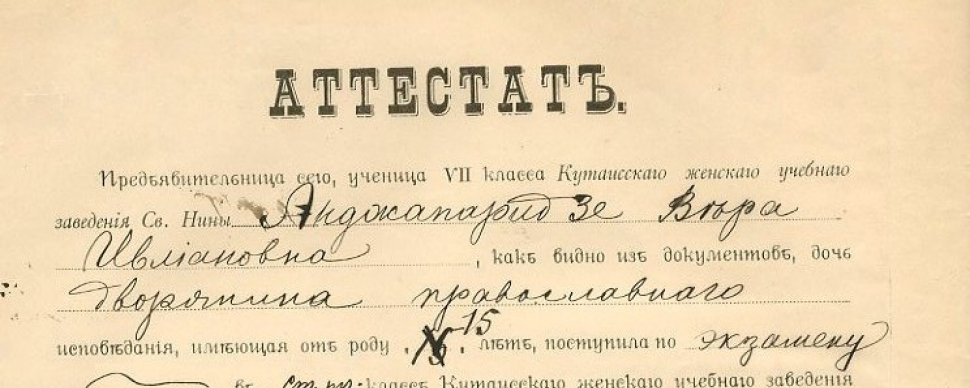 АТТЕСТАТЪ.
Предъявительница сего, ученица VII класса Кутаисскаго женскаго учебнаго
заведенія Св. Нины Анджапаридзе Вѣра
Ивліановна, какъ видно изъ документовъ, дочь
дворянина православнаго
исповѣданія, имѣющая отъ роду 15 лѣтъ, поступила по экзамену
въ классъ Кутаисскаго женскаго учебнаго заведенія